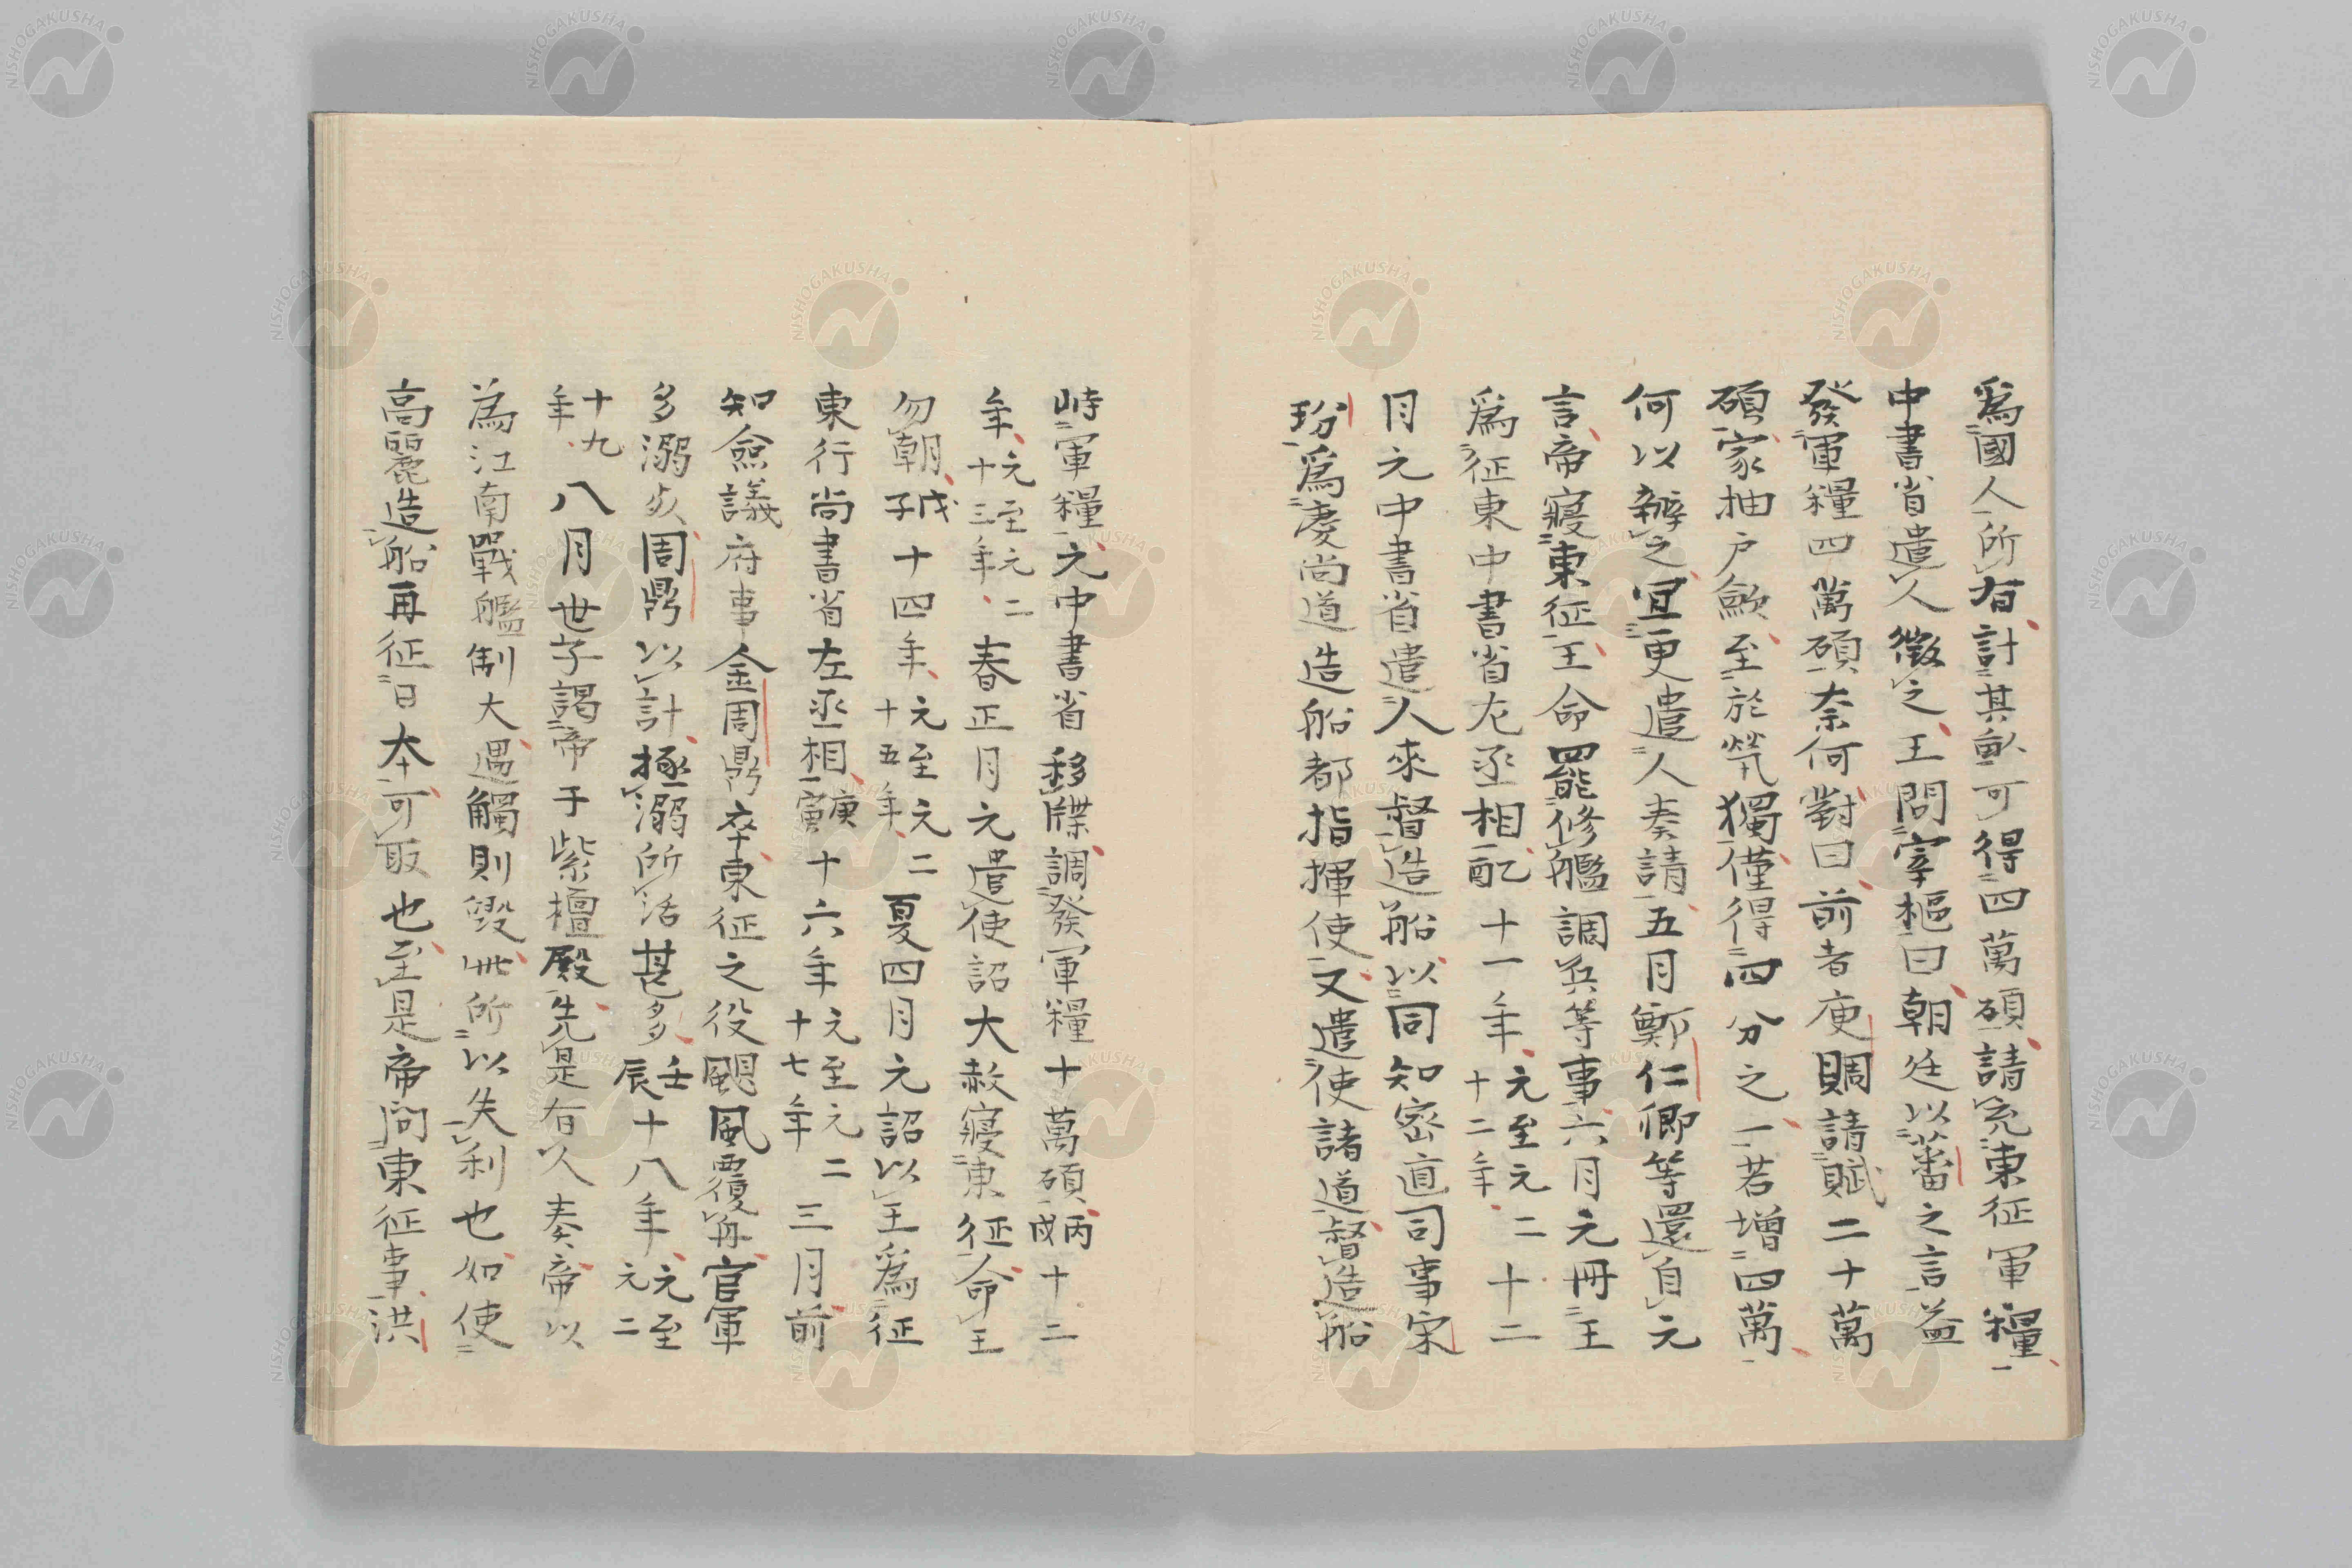 爲國人所有計其畝可得四萬碩請充東征軍糧
中書省遣人徵之王問宰樞曰朝廷以蕃之言益
發軍糧四萬碩奈何對曰前者庾賙請賦二十萬
碩家抽戶歛至於煢獨僅得四分之一若增四萬
何以辦之宜更遣人奏請五月鄭仁卿等還自元
言帝寢東征王命罷修艦調兵等事六月元冊王
爲征東中書省左丞相配十一年元至元二十二年十二
月元中書省遣人來督造船以同知密直司事宋
玢爲慶尚道造船都指揮使又遣使諸道督造船
峙軍糧元中書省移牒調發軍糧十萬碩丙戌十二
年元至元二十三年春正月元遣使詔大赦寢東征命王
勿朝戊子十四年元至元二十五年夏四月元詔以王爲征
東行尚書省左丞相庚寅十六年元至元二十七年三月前
知僉議府事金周鼎卒東征之役颶風覆舟官軍
多溺死周鼎以計拯溺所活甚多壬辰十八年元至元二
十九年八月世子謁帝于紫檀殿先是有人奏帝以
為江南戰艦制大遇觸則毀此所以失利也如使
高麗造船再征日本可取也至是帝問東征事洪
NISHOGAKUSHA